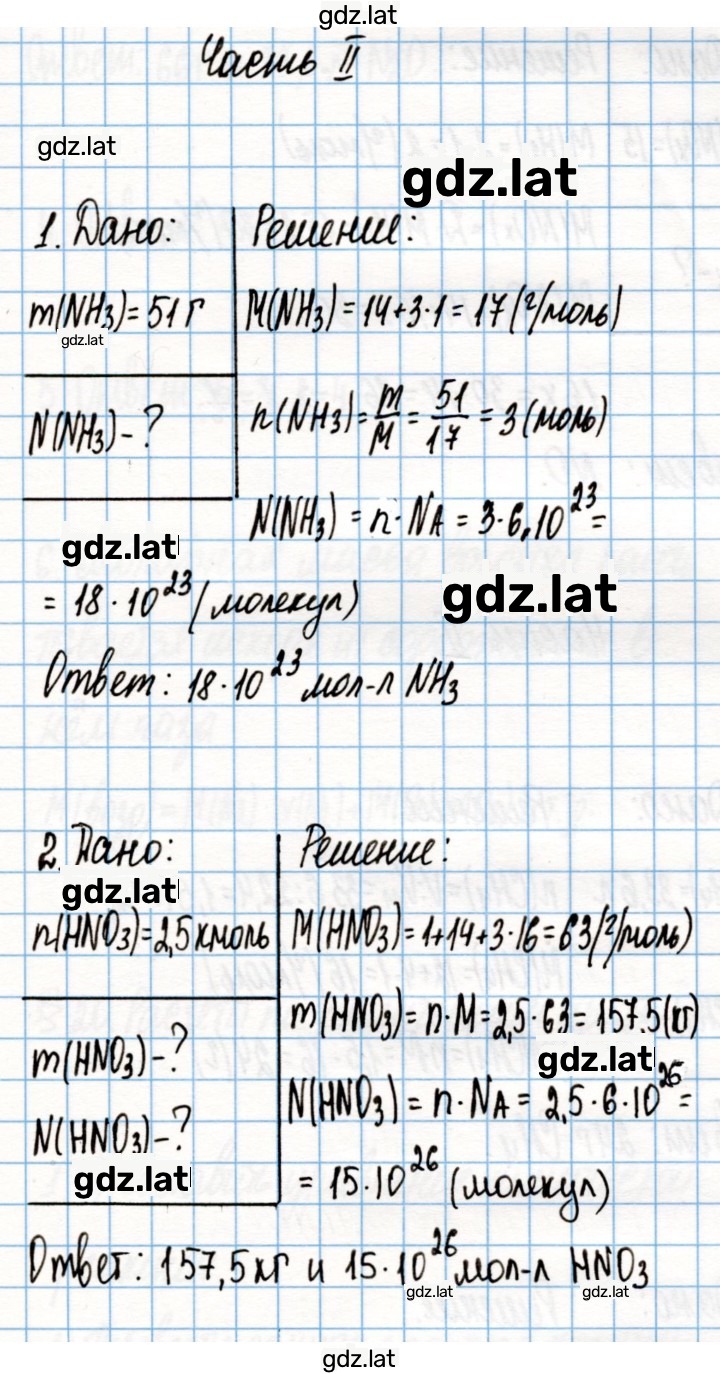 gdz.lat
Часть II
gdz.lat
gdz.lat
1. Дано:
m(NH₃)=51 г
gdz.lat
N(NH₃)-?
Решение:
M(NH₃)=14+3·1=17(г/моль)
n(NH₃)=m/M=51/17=3(моль)
N(NH₃)=n·NA=3·6,10²³=
gdz.lat
=18·10²³(молекул)
gdz.lat
Ответ: 18·10²³ мол-л NH₃
2. Дано:
gdz.lat
n(HNO₃)=2,5 кмоль
m(HNO₃)-?
N(HNO₃)-?
gdz.lat
Решение:
M(HNO₃)=1+14+3·16=63(г/моль)
m(HNO₃)=n·M=2,5·63=157.5(кг)
gdz.lat
N(HNO₃)=n·NA=2,5·6·10²⁶=
=15·10²⁶(молекул)
Ответ: 157,5 кг и 15·10²⁶ мол-л HNO₃
gdz.lat gdz.lat
gdz.lat